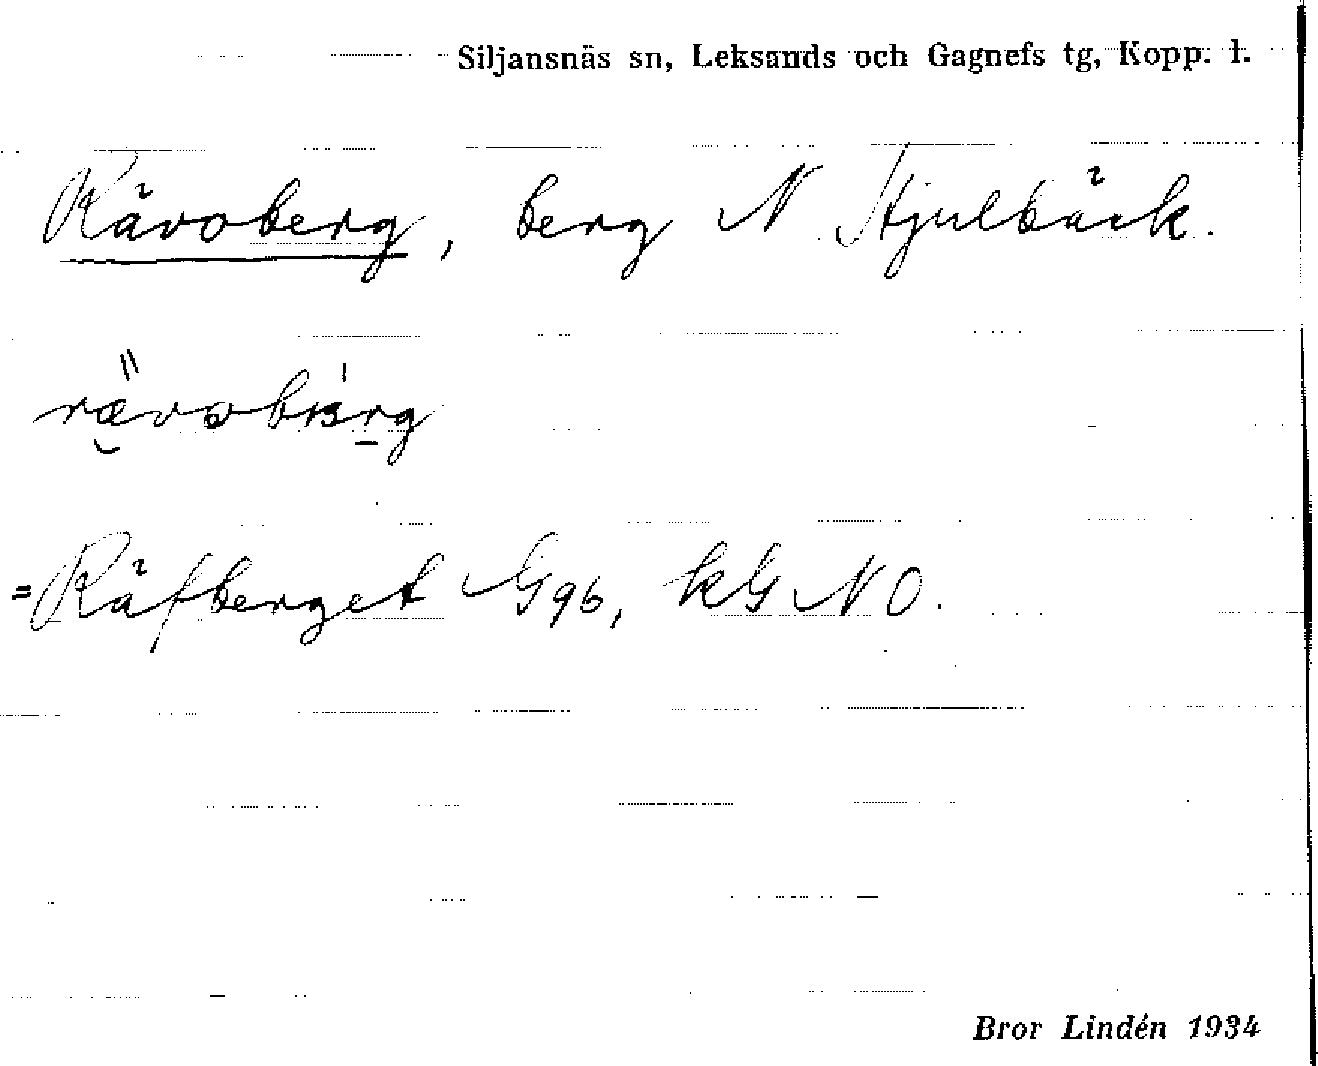 Siljansnäs sn, Leksands och Gagnefs tg, Kopp. l.
Rävoberg, berg N Hjulbäck.
rävobärg
=Räfberget Ggb, kG NO.
Bror Lindén 1934